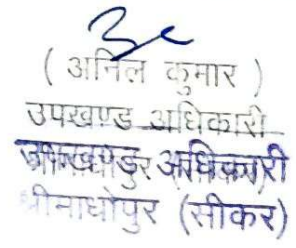 ( अनिल कुमार )
उपखण्ड अधिकारी
उपखण्ड अधिकारी
श्रीमाधोपुर (सीकर)